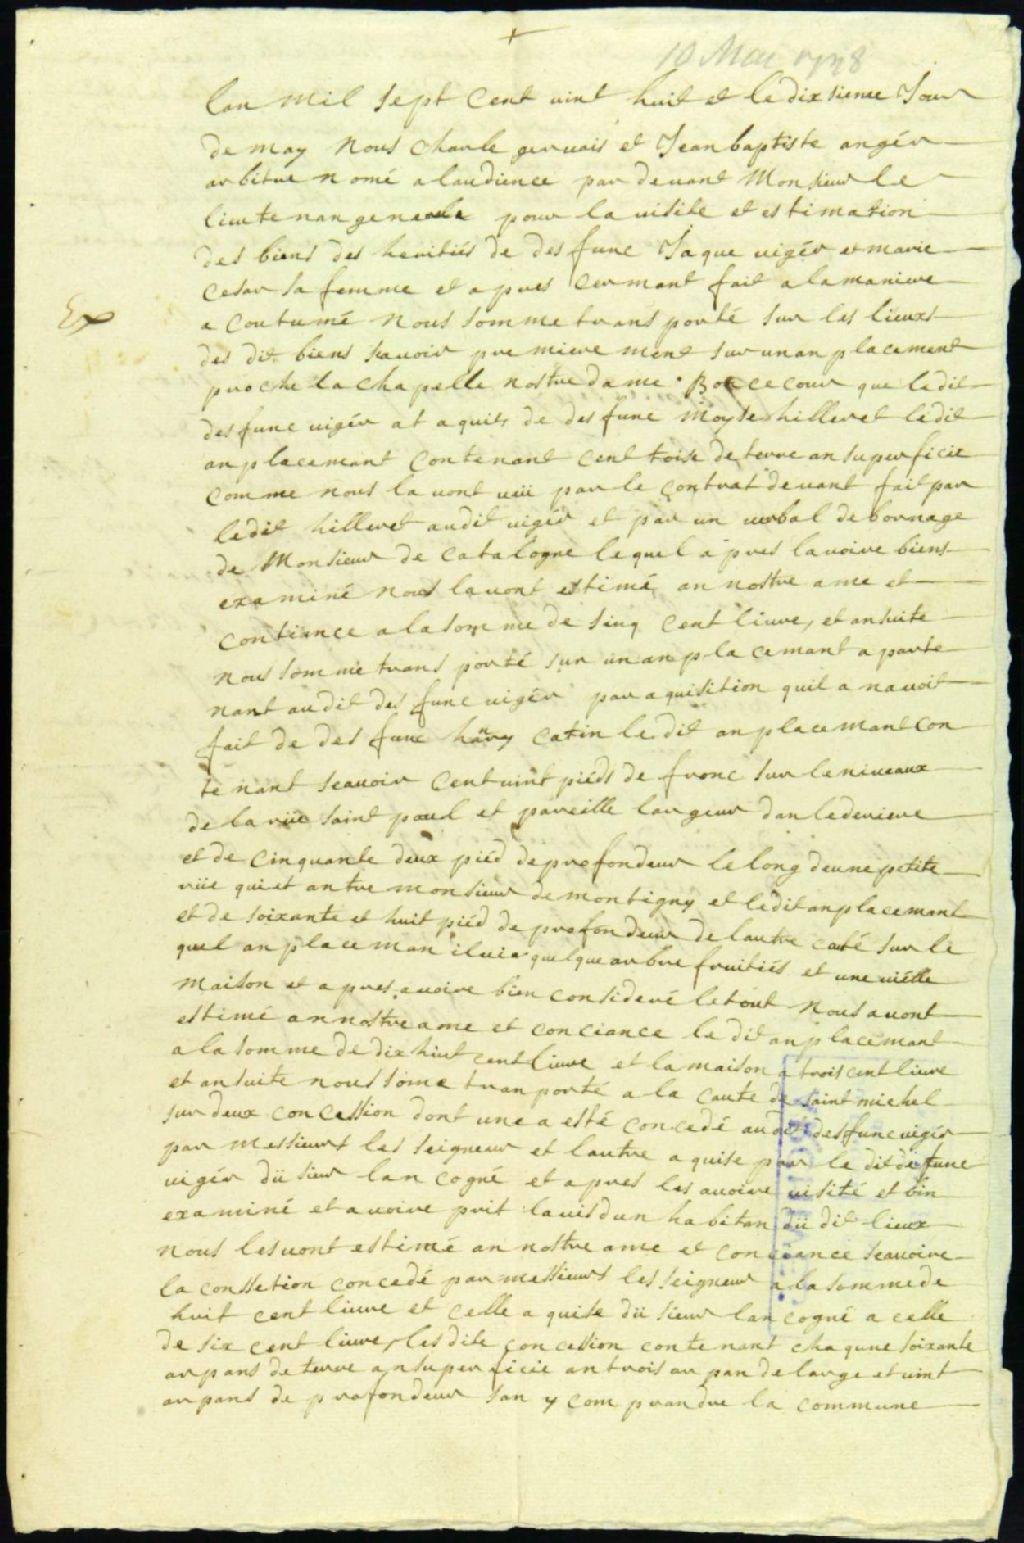 10 Mai 1728
Lan mil sept cent vint huit et le dixsieme Jour
de may nous charle geruais et Jean baptiste angér
arbitre nomé a laudience par deuant Monsieur le
lieutenan generale pour la uisite et estimation
des biens des heritiés de desfunc Jaque uigér et marie
cesar sa femme et apres cermant fait a la maniere
acoutumé nous somme transporté sur les lieuxs
Ex
des dit biens scauoir premierement sur un anplacement
proche la chapelle nostre dame Bonce cour que le dit
desfunc uigér at aquits de desfunc moyse hilleret ledit
anplacemant contenant cent toise de terre an superficie
comme nous la uont uüe par le contrat deuant fait par
ledit hilleret audit uigér et par un uerbal de bornage
de Monsieur de catalogne lequel apres lauoire biens
examiné nous lauont estimé an nostre ame et
contience a la somme de sinq cent liure, et ansuite
nous somme transporté sur un anplacemant aparte
nant audit desfunc uigér par aquisition quil a nauoit
fait de desfunc henry catin le dit anplacemant con
tenant scauoir cent uint pieds de fronc sur le niueaux
de la rüe saint paul et pareille largeur dan le deriere
et de cinquante deux piéd de profondeur le long deune petite
rüe qui et antre monsieur de montigny et ledit anplacemant
et de soixante et huit piéd de profondeur de lautre coté sur le
quel anplaceman il ui a quelque arbre fruitiés et une uiélle
maison et apres auoire bien consideré le tout nous auont
estimé an nostre ame et conciance le dit anplacemant
a la somme de dix huit cent liure et la maison a trois cent liure
et ansuite nous some tranporté a la caute de saint michel
sur deux concession dont une a esté concedé audit desfunc uigér
par messieurs les seigneur et lautre aquise par le dit defunc
uigér dü sieur lancogné et apres les auoire uisité et bin
examiné et auoire prit lauis dun habitan dü dit lieux
nous lesuont estimé an nostre ame et conciance scauoire
la consetion concedé par messieurs les seigneur a la somme de
huit cent liure et celle aquise dü sieur lancogné a celle
de six cent liure, les dite concession contenant chaqune soixante
arpans de terre an superficie an trois arpan de large et uint
arpans de profondeur san y comprandre la commune